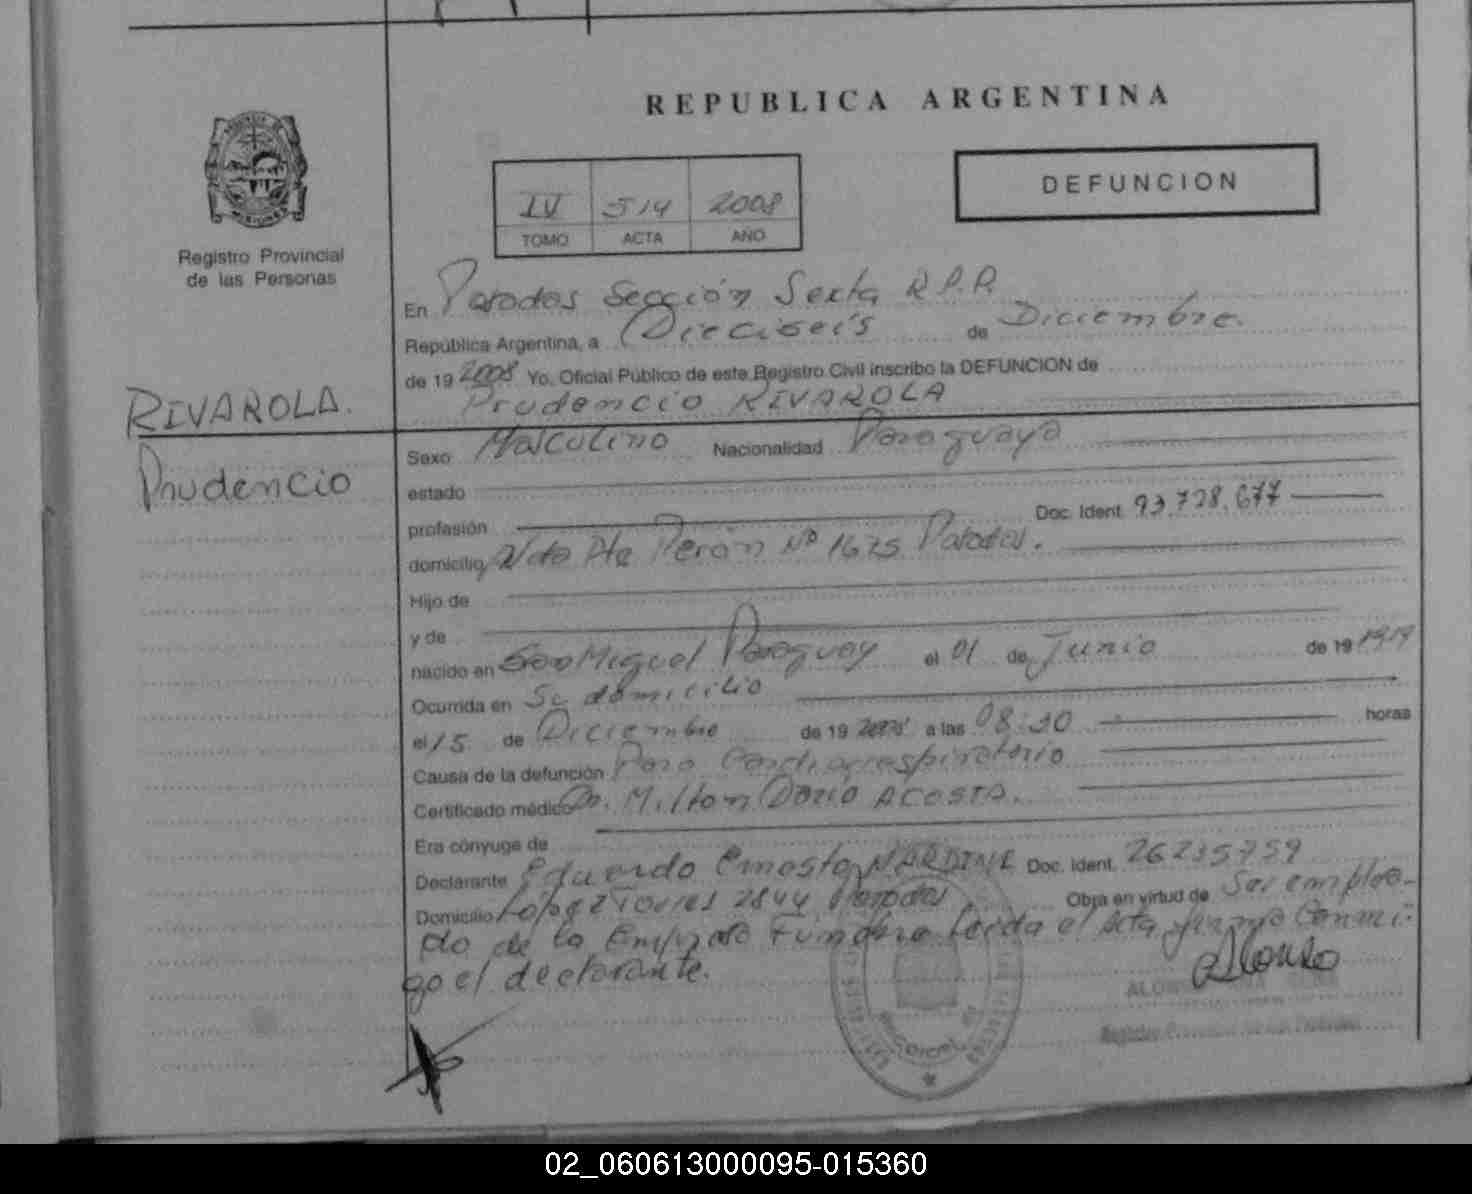 REPUBLICA ARGENTINA
DEFUNCION
IV 514 2008
TOMO ACTA AÑO
MISIONES
Registro Provincial
de las Personas
En Posadas Sección Sexta R.P.P.
República Argentina, a Dieciseis de Diciembre.
de 19 2008 Yo, Oficial Público de este Registro Civil inscribo la DEFUNCION de
Prudencio RIVAROLA
RIVAROLA.
Prudencio
Sexo Masculino Nacionalidad Paraguaya
estado
profesión Doc. Ident. 93.728.677
domicilio Pte Perón Nº 1675 Posadas.
Hijo de
y de
nacido en San Miguel Paraguay el 01 de Junio de 19 1919
Ocurrida en Su domicilio
el 15 de Diciembre de 19 2008 a las 08:30 horas
Causa de la defunción Paro Cardiorrespiratorio
Certificado médico Dr. Milton Dario ACOSTA.
Era cónyuge de
Declarante Eduardo Ernesto Doc. Ident. 26235759
Domicilio Lopez Torres 2844 Posadas Obra en virtud de Ser emplea-
do de la Empresa Fúnebre Leida el Acta firma Conmi-
go el declarante.
Alonso
02_060613000095-015360